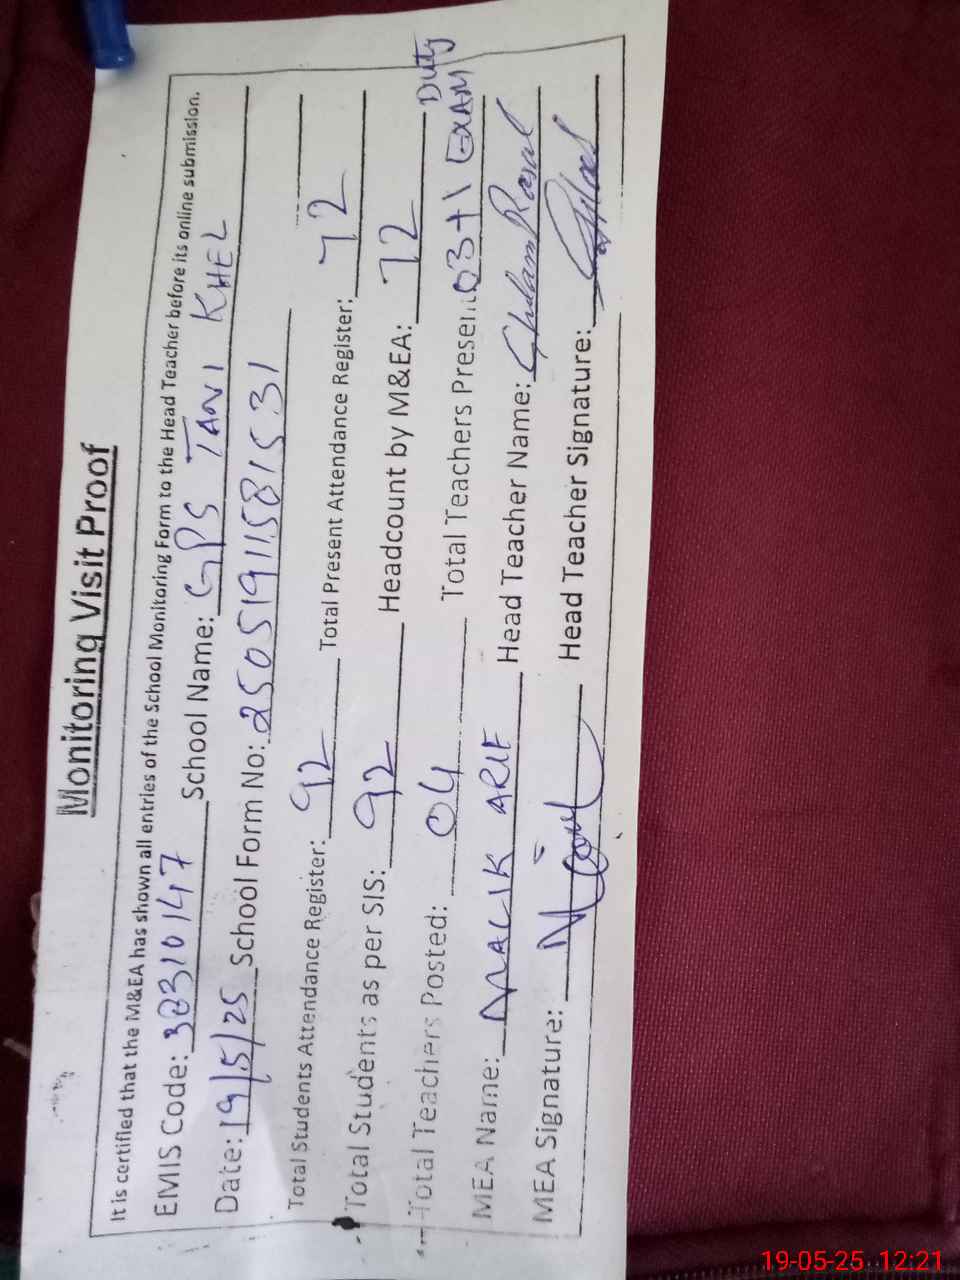 Monitoring Visit Proof
It is certified that the M&EA has shown all entries of the School Monitoring Form to the Head Teacher before its online submission.
EMIS Code: 38310147 School Name: GPS TANI KHEL
Date: 19/5/25 School Form No: 250519115815 31
Total Students Attendance Register: 92 Total Present Attendance Register: 72
Total Students as per SIS: 92 Headcount by M&EA: 72
Total Teachers Posted: 04 Total Teachers Present: 03+1 EXAM Duty
MEA Name: MALIK ARIF Head Teacher Name: Ghulam Rasul
MEA Signature: Head Teacher Signature:
19-05-25 12:21